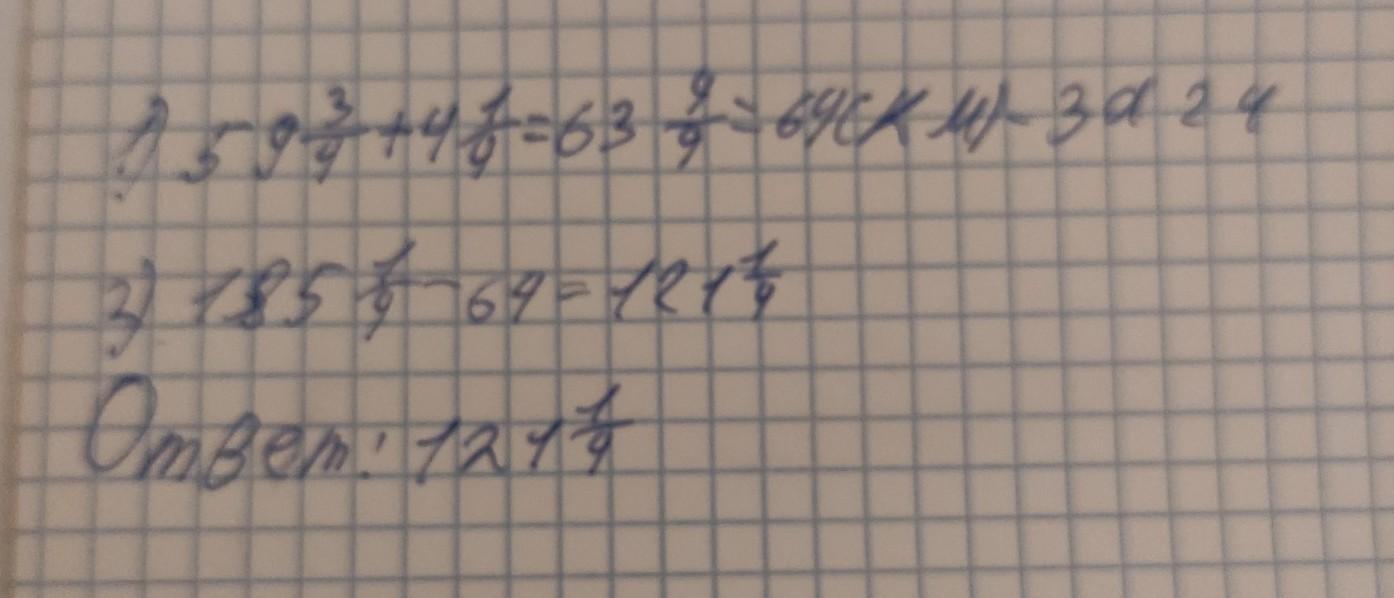 1) 59 3/4 + 4 1/4 = 63 4/4 = 64(км) - за 2 ч
2) 185 1/4 - 64 = 121 1/4
Ответ: 121 1/4